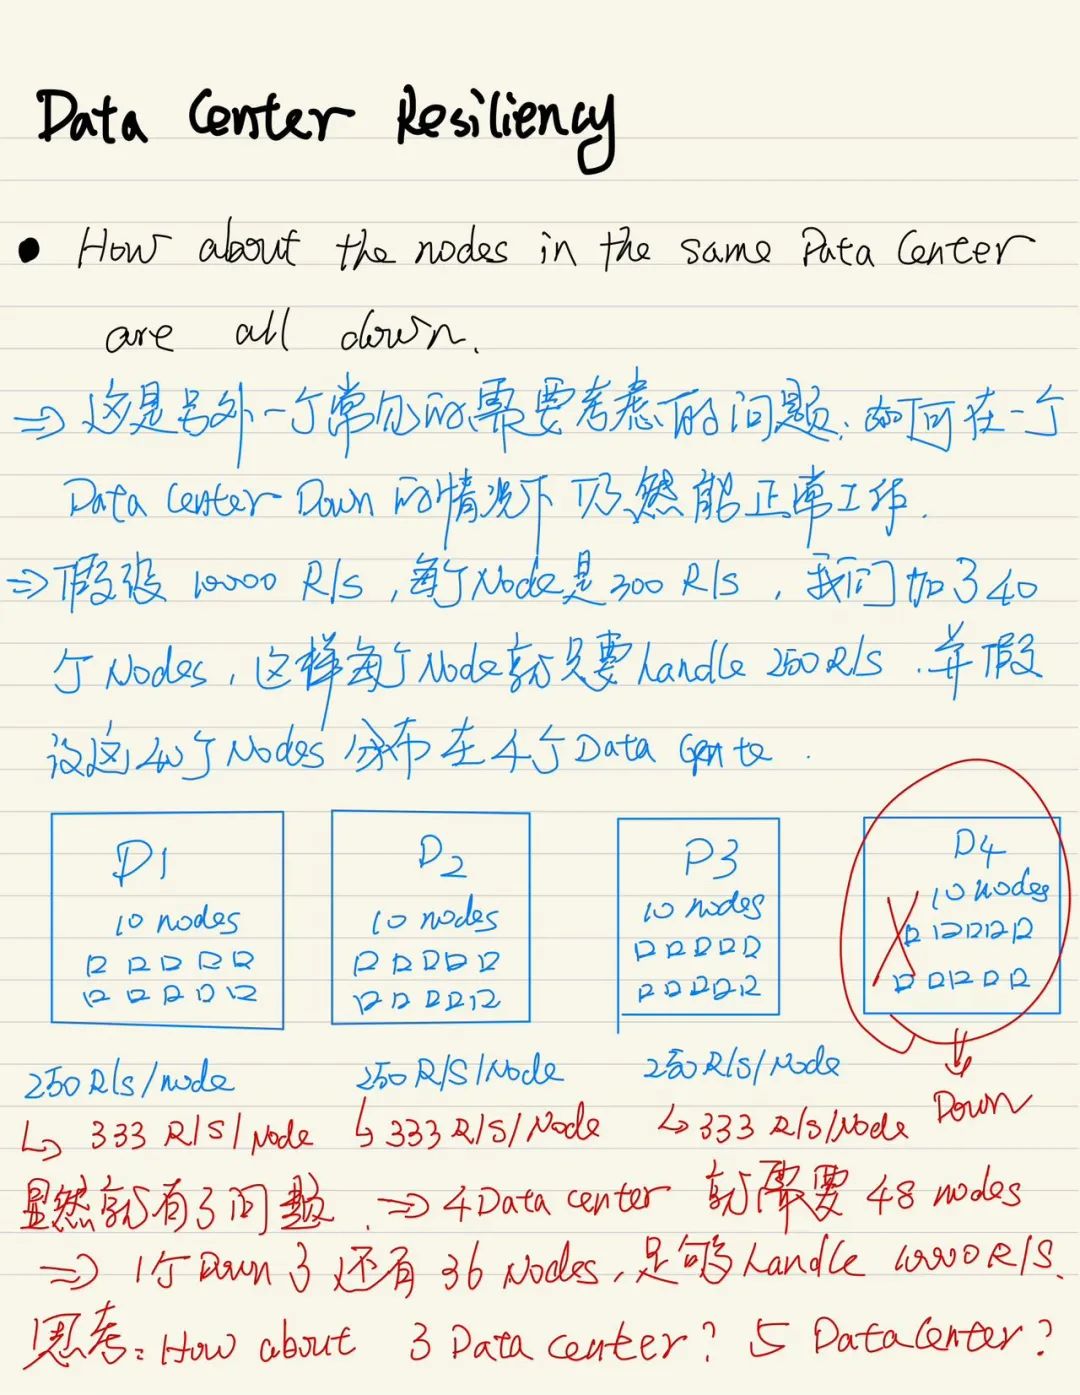 Data Center Resiliency
• How about the nodes in the same Data Center
are all down.
⇒ 这是另外一个常见的需要考虑的问题. 如何在一个
Data Center Down 的情况下仍然能正常工作.
⇒ 假设 10000 R/s, 每个Node是300 R/s, 我们加了40
个Nodes, 这样每个Node就只要handle 250R/S. 并假
设这40个Nodes分布在4个Data Cente.
D1 D2 D3 D4
10 nodes 10 nodes 10 nodes 10 nodes
250 R/s/node 250 R/S/Node 250 R/S/Node Down
↳ 333 R/S/Node ↳ 333 R/S/Node ↳ 333 R/s/Node
显然就有了问题. ⇒ 4 Data center 就需要 48 nodes
⇒ 1个Down了还有36 Nodes, 足够handle 10000R/S.
思考: How about 3 Data center? 5 Data Center?